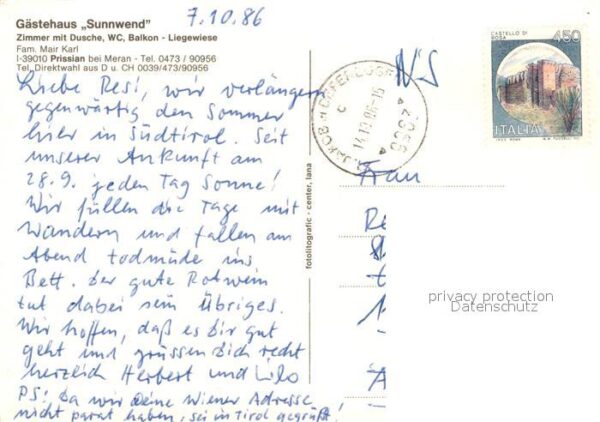 7.10.86
Gästehaus „Sunnwend"
Zimmer mit Dusche, WC, Balkon - Liegewiese
Fam. Mair Karl
I-39010 Prissian bei Meran - Tel. 0473 / 90956
Tel. Direktwahl aus D u. CH 0039/473/90956
Liebe Resi, wir verlängern
gegenwärtig den Sommer
hier in Südtirol. Seit
unserer Ankunft am
28.9. jeden Tag Sonne!
Wir füllen die Tage mit
Wandern und fallen am
Abend todmüde ins
Bett. Der gute Rotwein
tut dabei sein Übriges.
Wir hoffen, daß es Dir gut
geht und grüssen Dich recht
herzlich Herbert und Lilo
PS: Da wir Deine Wiener Adresse
nicht parat haben, sei in Tirol gegrüßt!
fotolitografic - center, lana
CASTELLO DI
ROSA
450
ITALIA
Frau
privacy protection
Datenschutz